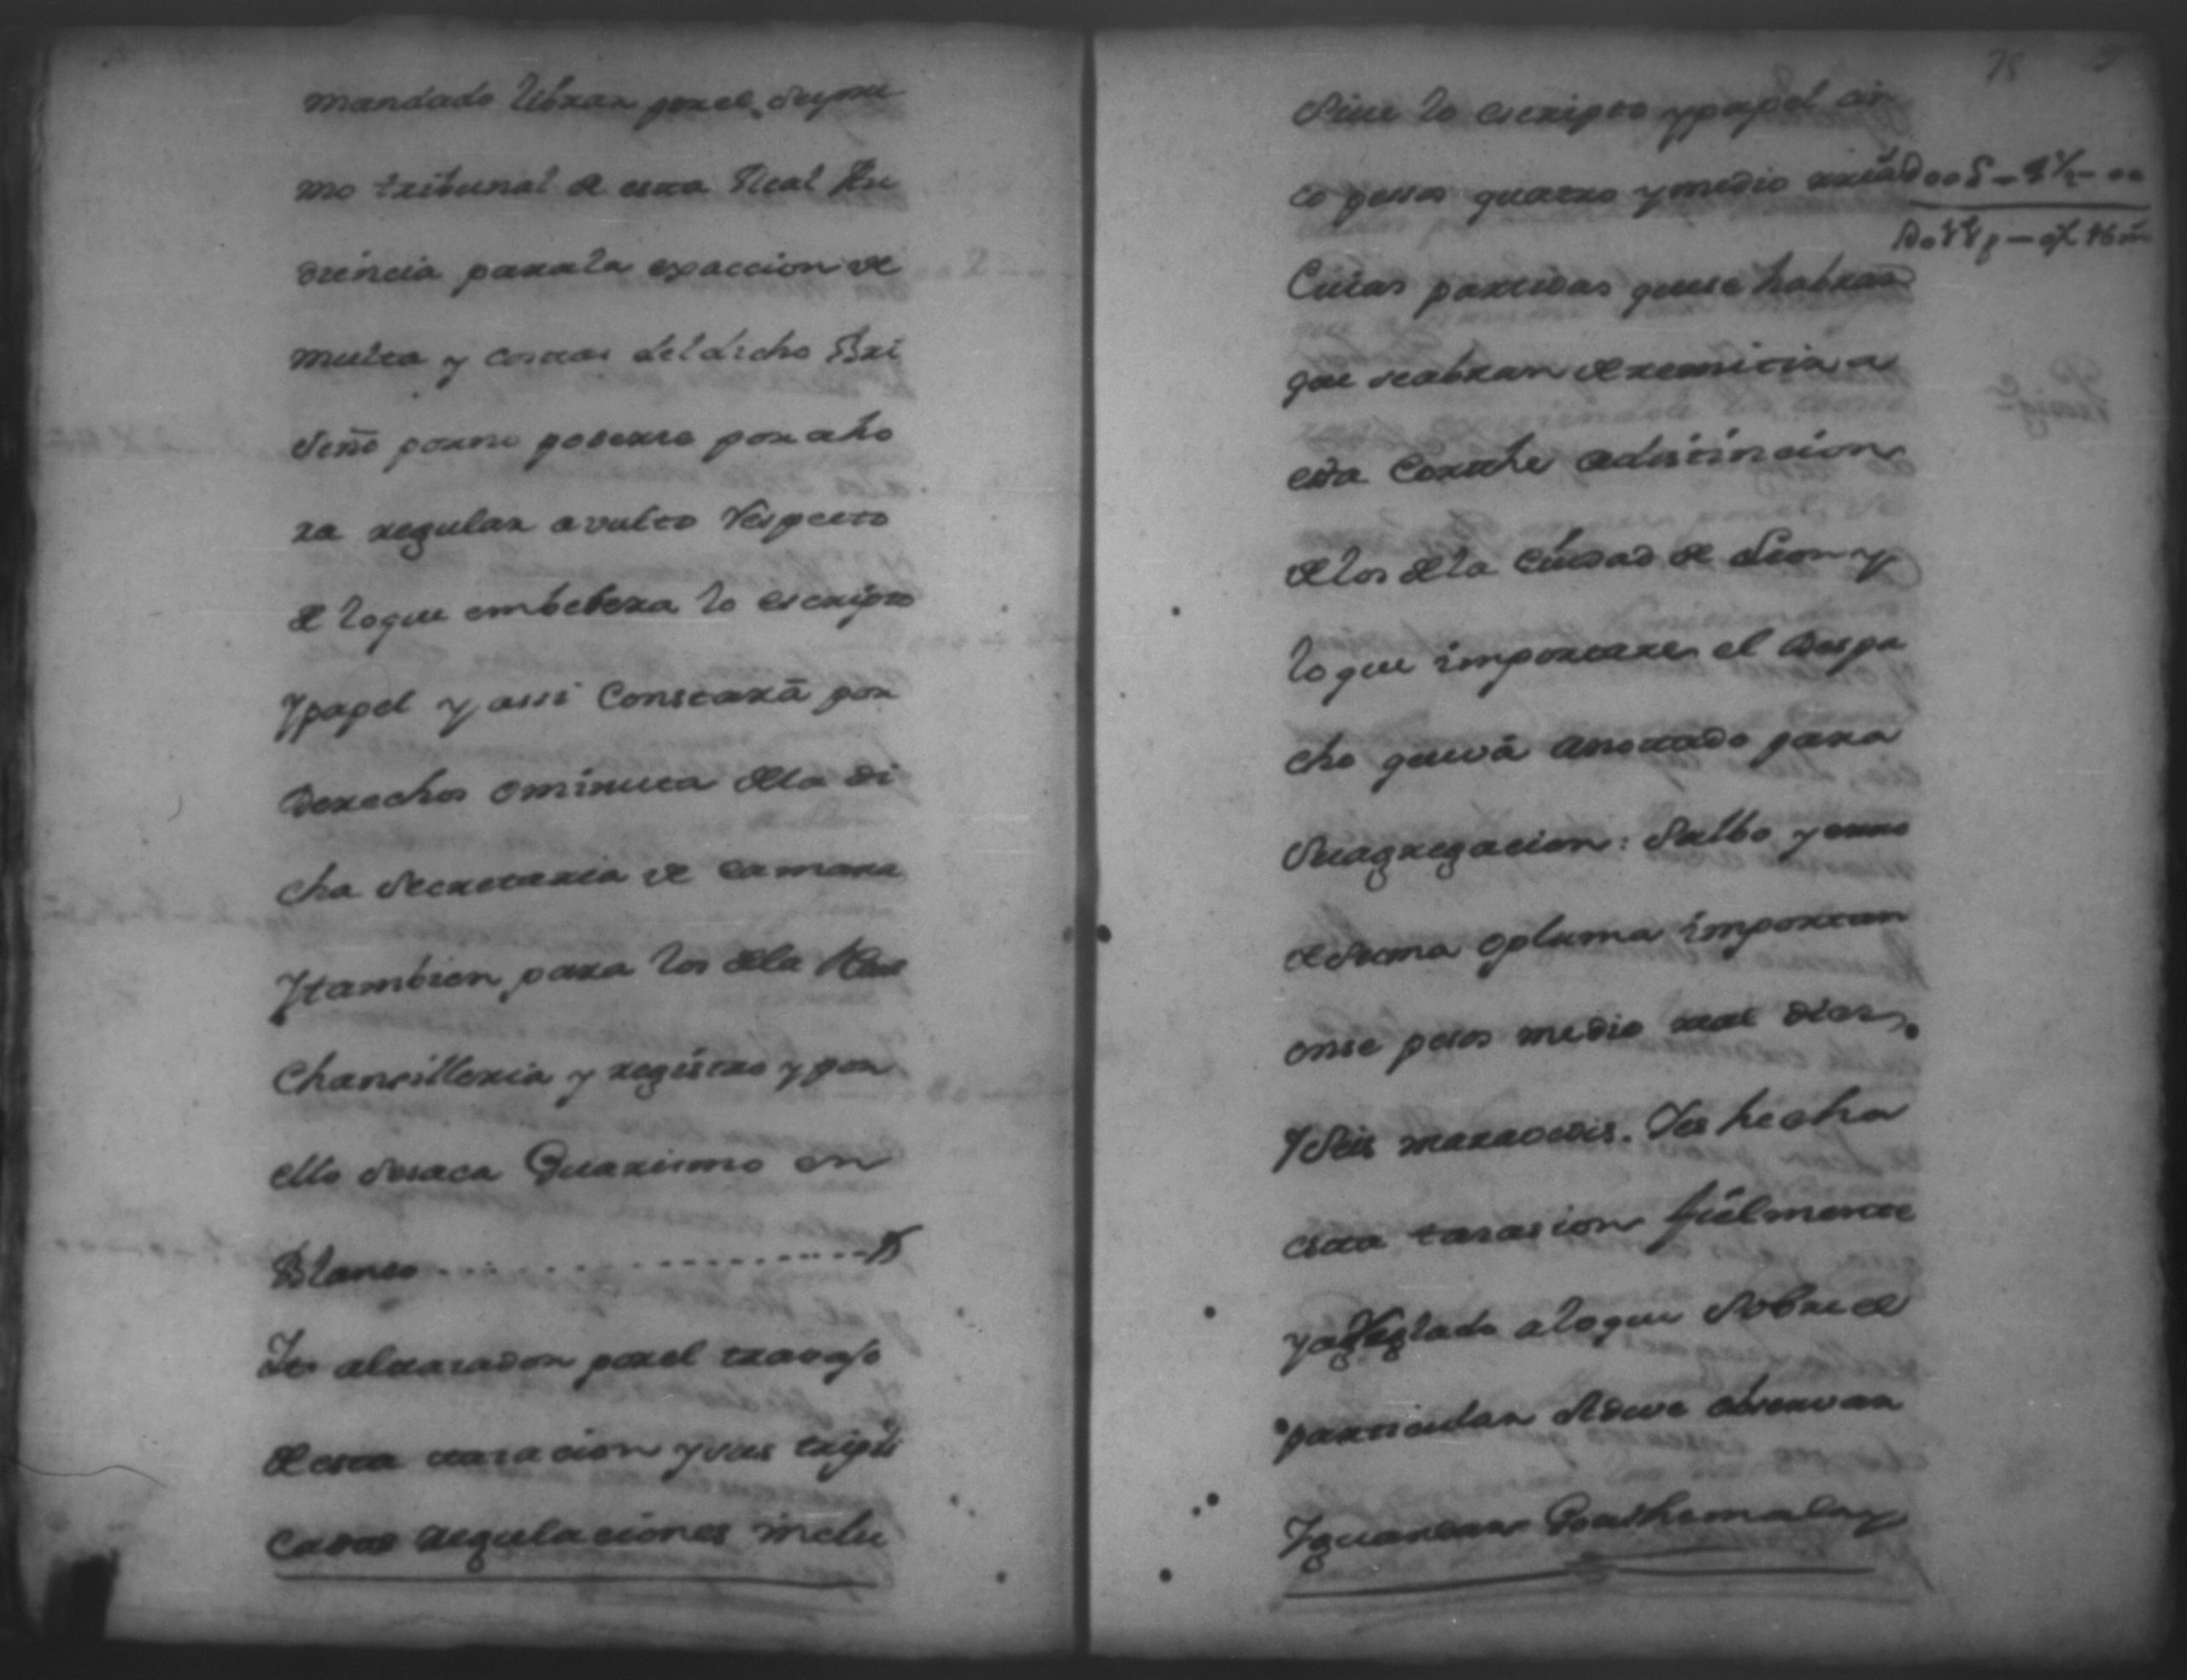 mandado librar por el supre
mo tribunal de esta Real Au
diencia para la exaccion de
multa y costas del dicho Bri
seño por no poderse por aho
ra regular a vulto respecto
de loque embebera lo escripto
y papel y assi Constará por
Derechos o minuta dela di
cha Secretaria de camara
Y tambien para los dela Real
Chansilleria y registro y por
ello sesaca Guarismo en
Blanco
Yes al tasador por el travajo
de esta tasacion y sus tripli
cadas regulaciones inclu
sive lo escripto y papel cin
co pessos quatro y medio
Cuias partidas quese habran
que se abran de remitir a
esta Corthe a distincion
de los dela Ciudad de Leon y
lo que importare el Despa
cho que vá anotado para
su agregacion: Salbo yerro
de suma o pluma importan
onse pesos medio real dies
Y seis maravedis. Yes hecha
esta tasasion fielmente
y arreglado alo que sobre el
particular se deve observar
Y guardar Goathemala y